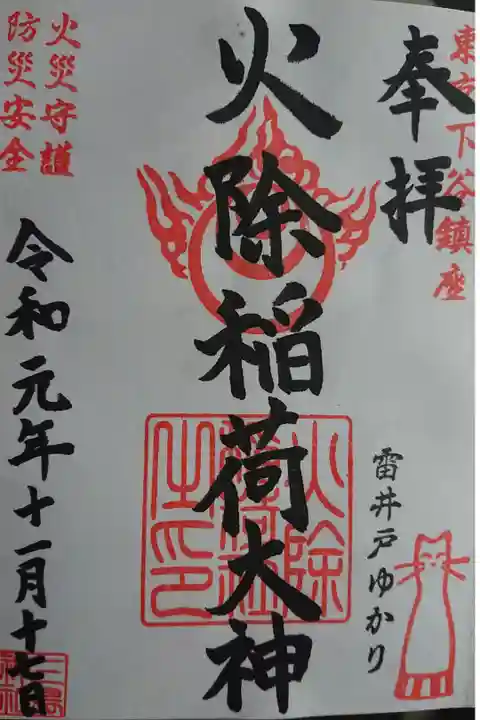 東京下谷鎮座
奉拝
雷井戸ゆかり
火除稲荷大神
火除
稲荷社
之印
火災守護
防災安全
令和元年十一月十七日
三島
神社